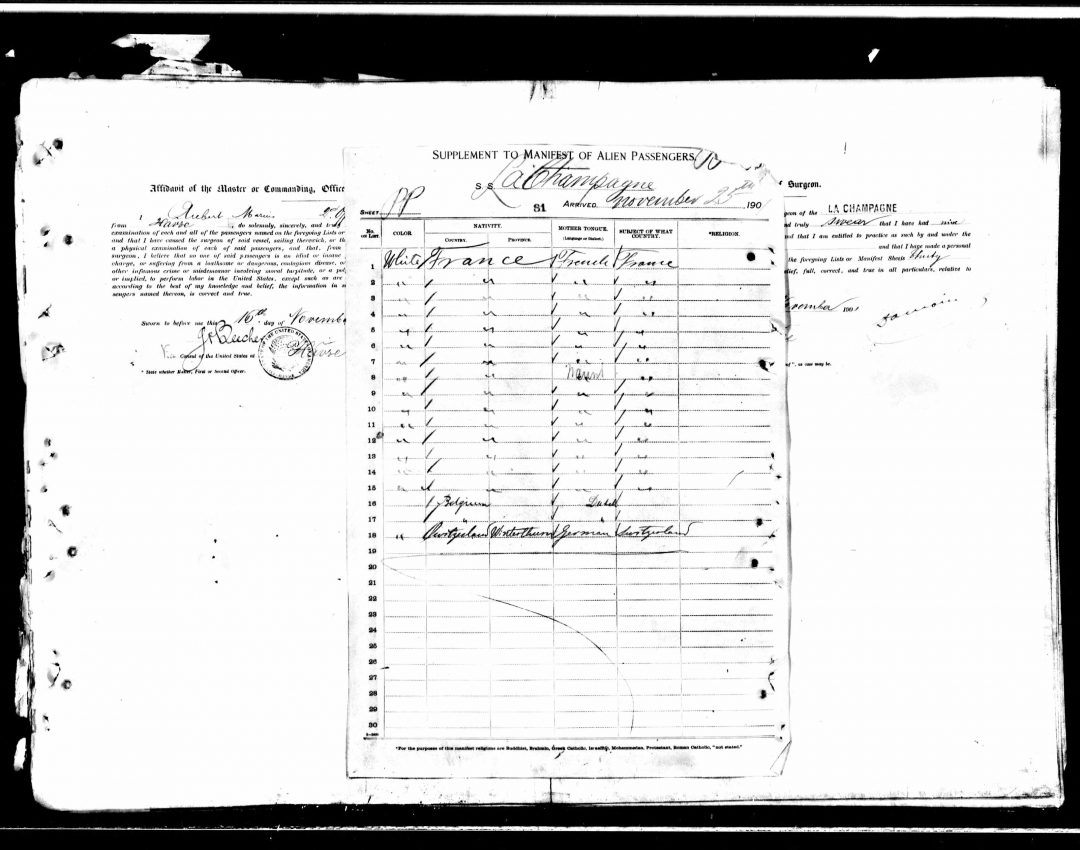 SUPPLEMENT TO MANIFEST OF ALIEN PASSENGERS.
S. S. La Champagne
SHEET PP 81 ARRIVED November 25th 190
No. on List. COLOR. NATIVITY. COUNTRY. PROVINCE. MOTHER TONGUE. (Language or Dialect.) SUBJECT OF WHAT COUNTRY. *RELIGION.
1 White France French France
2 " " " "
3 " " " "
4 " " " "
5 " " " "
6 " " " "
7 " " " "
8 " "
9 " " " "
10 " " " "
11 " " " "
12 " " " "
13 " " " "
14 " " " "
15 " " " "
16 Belgium
17 " "
18 " Switzerland Winterthur German Switzerland
19
20
21
22
23
24
25
26
27
28
29
30
*For the purposes of this manifest religions are Buddhist, Brahmin, Greek Catholic, Israelite, Mohammedan, Protestant, Roman Catholic, "not stated."
Affidavit of the Master or Commanding, Office
I
From Havre do solemnly, sincerely, and
examination of each and all of the passengers named on the foregoing Lists or
and that I have caused the surgeon of said vessel, sailing therewith, or th
a physical examination of each of said passengers, and that, from
surgeon, I believe that no one of said passengers is an idiot or insane
charge, or suffering from a loathsome or dangerous, contagious disease, or
other infamous crime or misdemeanor involving moral turpitude, or a pol
or implied, to perform labor in the United States, except such as are
according to the best of my knowledge and belief, the information in s
sengers named thereon, is correct and true.
Sworn to before me this 16th day of Novembe
Consul of the United States at Havre
* State whether Master, First or Second Officer.
Surgeon.
geon of the LA CHAMPAGNE
nd truly swear that I have had nine
and that I am entitled to practice as such by and under the
and that I have made a personal
the foregoing Lists or Manifest Sheets thirty
lief, full, correct, and true in all particulars, relative to
vember 190
", as case may be.